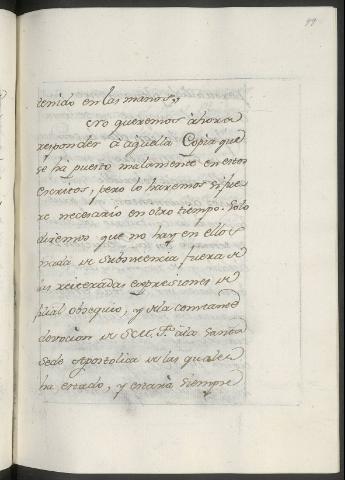 99
tenido en las manos,,
No queremos àhora
responder à àquella Copia que
se hà puesto malamente en estos
escritos, pero lo haremos si fue
re necesario en otro tiempo. Solo
diremos que no hay en ellos
nada de subsistencia fuera de
las reiteradas expresiones de
filial obsequio, y de la constante
devocion de S. ala Santa
Sede Apostolica de las quales
ha estado, y estarà siempre